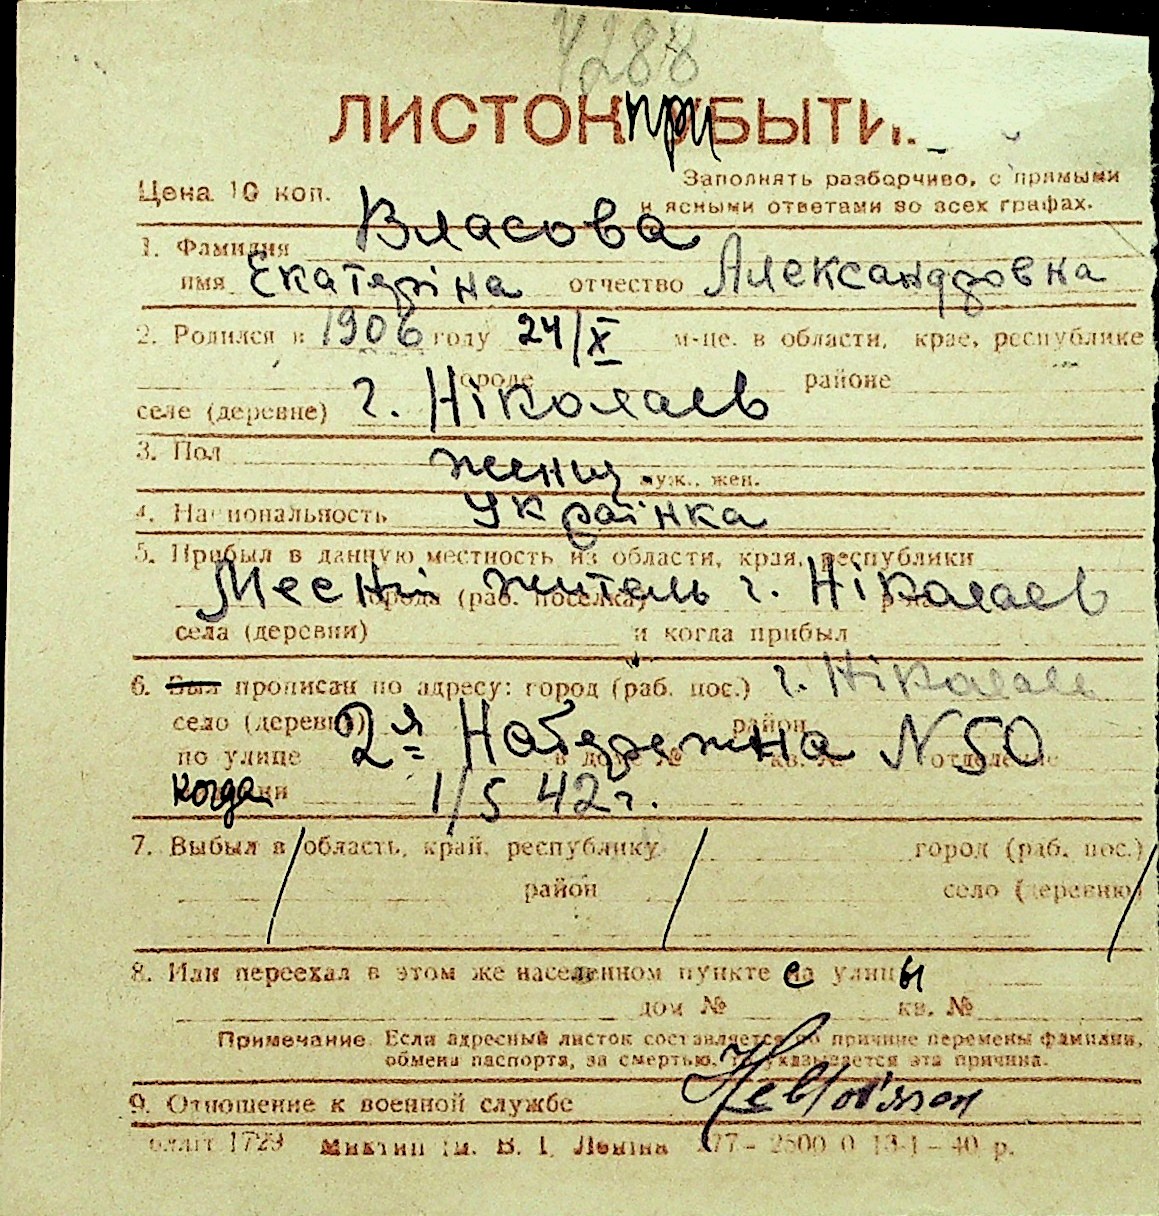 4288
ЛИСТОК при БЫТИ
Цена 10 коп.
Заполнять разборчиво, с прямыми
и ясными ответами во всех графах.
1. Фамилия Власова
имя Екатеріна отчество Александровна
2. Родился в 1906 году 24/X м-це. в области, крае, республике
городе районе
селе (деревне) г. Ніколаев
3. Пол женщ муж., жен.
4. Национальность Українка
5. Прибыл в данную местность из области, края, республики
Месні житель г. Ніколаев
города (раб. поселка) р-на
села (деревни) и когда прибыл
6. Был прописан по адресу: город (раб. пос.) г. Ніколаев
село (деревня) район
2я Набережна N 50
по улице в доме № кв. № отделение
когда 1/5 42 г.
7. Выбыл в область, край, республику город (раб. пос.)
район село (деревню)
8. Или переехал в этом же населенном пункте с улицы
дом № кв. №
Примечание. Если адресный листок составляется по причине перемены фамилии,
обмена паспорта, за смертью, то указывается эта причина.
9. Отношение к военной службе
1729 ім. В. І. Леніна 177 – 2500 0 13-1 – 40 р.